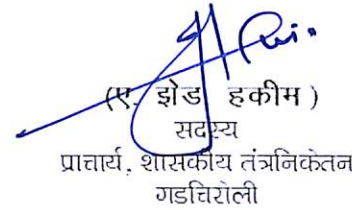 (ए. झेड हकीम )
सदस्य
प्राचार्य, शासकीय तंत्रनिकेतन
गडचिरोली